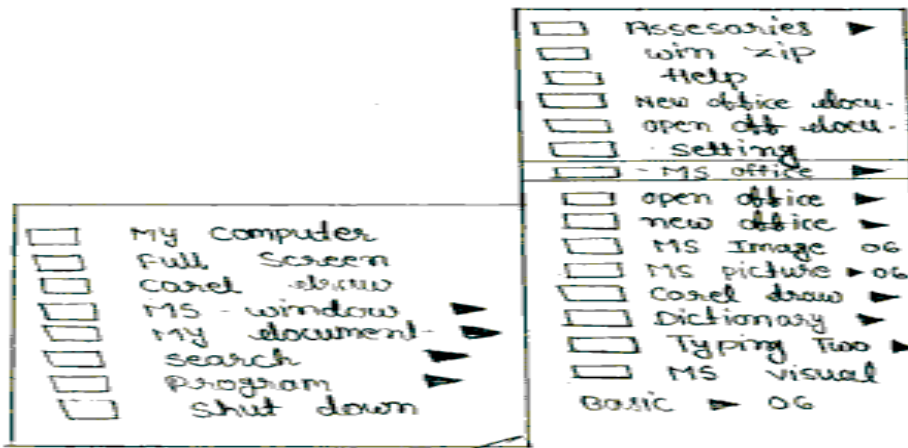 My computer
Full Screen
Corel draw
MS - window ►
My document - ►
Search ►
Program ►
Shut down
Assesaries ►
win zip
Help
New office docu -
open off docu -
Setting
- MS office ►
open office ►
new office ►
MS Image 06
MS picture ► 06
Corel draw ►
Dictionary ►
Typing Two ►
MS visual
Basic ► 06